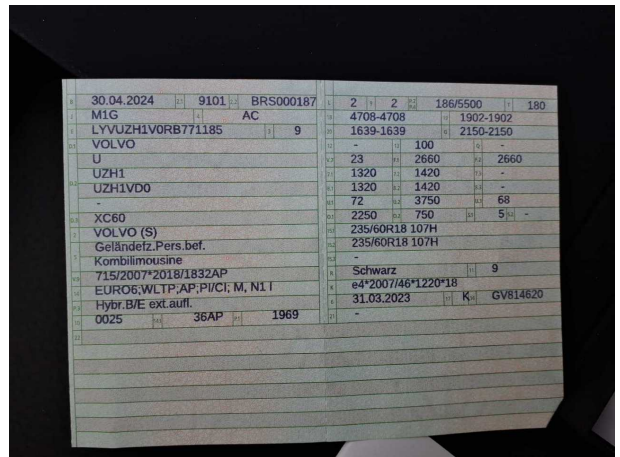 30.04.2024 9101 BRS000187
M1G AC
LYVUZH1V0RB771185 9
VOLVO
U
UZH1
UZH1VD0
-
XC60
VOLVO (S)
Geländefz.Pers.bef.
Kombilimousine
715/2007*2018/1832AP
EURO6;WLTP;AP;PI/CI; M, N1 I
Hybr.B/E ext.aufl.
0025 36AP 1969
2 2 186/5500 180
4708-4708 1902-1902
1639-1639 2150-2150
- 100 -
23 2660 2660
1320 1420 -
1320 1420 -
72 3750 68
2250 750 5 -
235/60R18 107H
235/60R18 107H
-
Schwarz 9
e4*2007/46*1220*18
31.03.2023 K GV814620
-